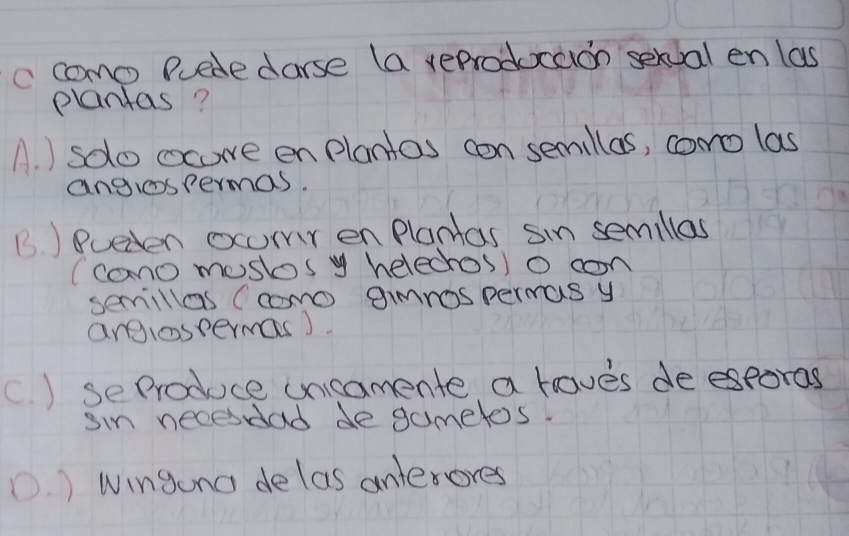 ¿ como Puede darse la reproducción sexual en las
plantas ?
A.) solo ocurre en plantas con semillas, como las
angiospermas.
B.) Pueden ocurrir en plantas sin semillas
(como muslos y helechos) o con
semillas (como gimnospermas y
angiospermas).
C.) se Produce unicamente a través de esporas
sin necesidad de gametos.
D.) Winguna de las anteriores